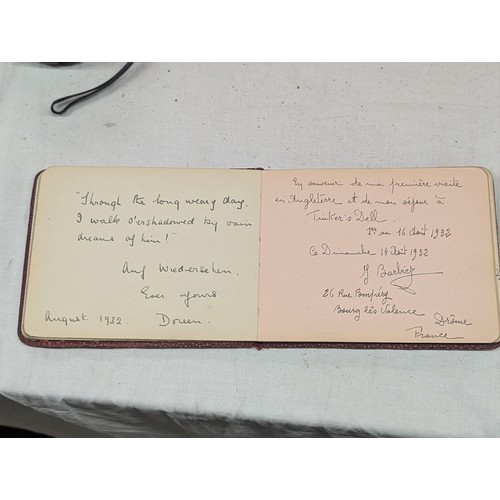 "Through the long weary day.
I walk o'ershadowed by vain
dreams of him!"
Auf Wiedersehen.
Ever yours.
August 1932. Doreen.
En souvenir de ma première visite
en Angleterre et de mon séjour à
Tinker's Dell.
1er au 16 Août 1932
Ce Dimanche 14 Août 1932
J Barbier
26 Rue
Bourg lès Valence
Drôme
France